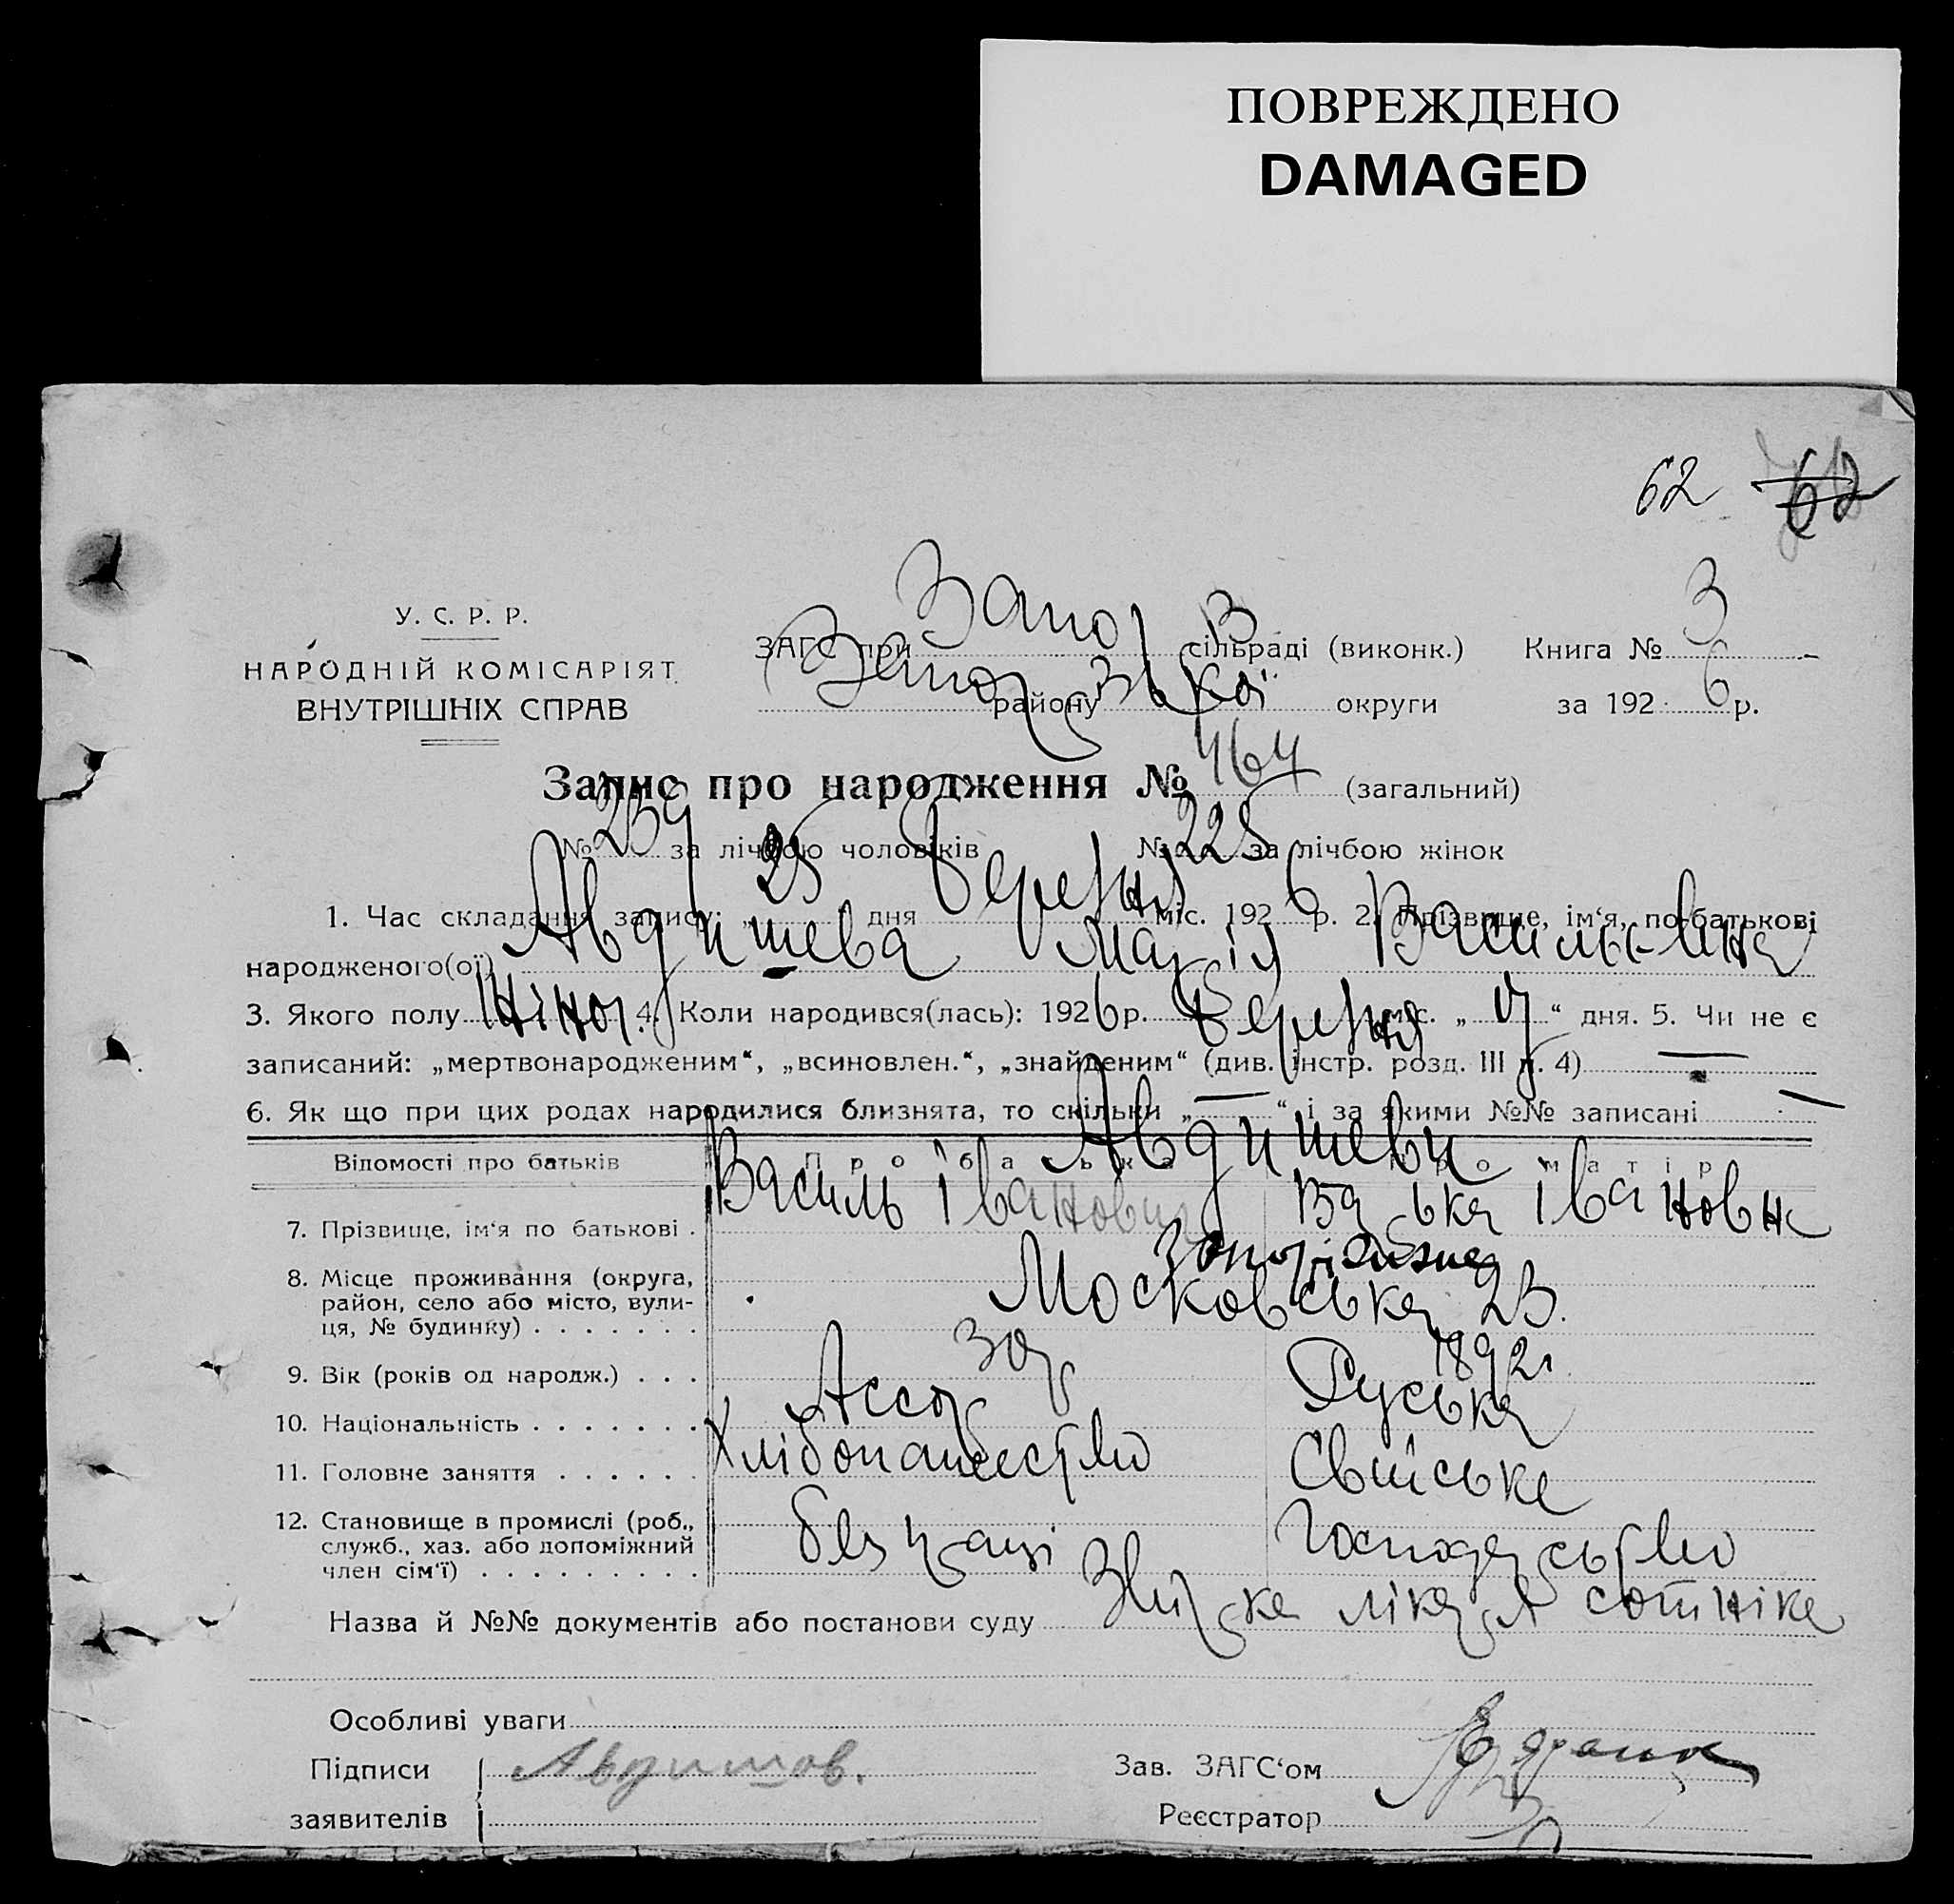 ПОВРЕЖДЕНО
DAMAGED
62 62
У. С. Р. Р.
НАРОДНІЙ КОМІСАРІЯТ
ВНУТРІШНІХ СПРАВ
ЗАГС при Запор сільраді (виконк.) Книга № 3
району округи за 1926 р.
Запис про народження № 464 (загальний)
№ 239 за лічбою чоловіків № 225 за лічбою жінок
1. Час складання запису: „ 25 " дня Березня міс. 1926 р. 2. Прізвище, ім'я, по-батькові
народженого(ої) Авдишева Марія Васильевна
3. Якого полу Жіноч. 4. Коли народився(лась): 1926 р. Березня міс. „ " дня. 5. Чи не є
записаний: „мертвонародженим", „всиновлен.", „знайденим" (див. інстр. розд. III п. 4) —
6. Як що при цих родах народилися близнята, то скільки „ — " і за якими №№ записані —
Відомості про батьків Про батька Про матір
Авдишеви
7. Прізвище, ім'я по батькові . Василь Іванович Івановн
8. Місце проживання (округа, район, село або місто, вулиця, № будинку) . . . . . . . Запоріжжя
Московська 23.
9. Вік (років од народж.) . . . 30 1892
10. Національність . . . . . . . Ассор Руська
11. Головне заняття . . . . . . Хлібопашество Свійське
12. Становище в промислі (роб., служб., хаз. або допоміжний член сім'ї) . . . . . . . . . без праці Господарство
Назва й №№ документів або постанови суду лікаря сотніка
Особливі уваги
Підписи Авдишов. Зав. ЗАГС'ом
заявителів Реєстратор